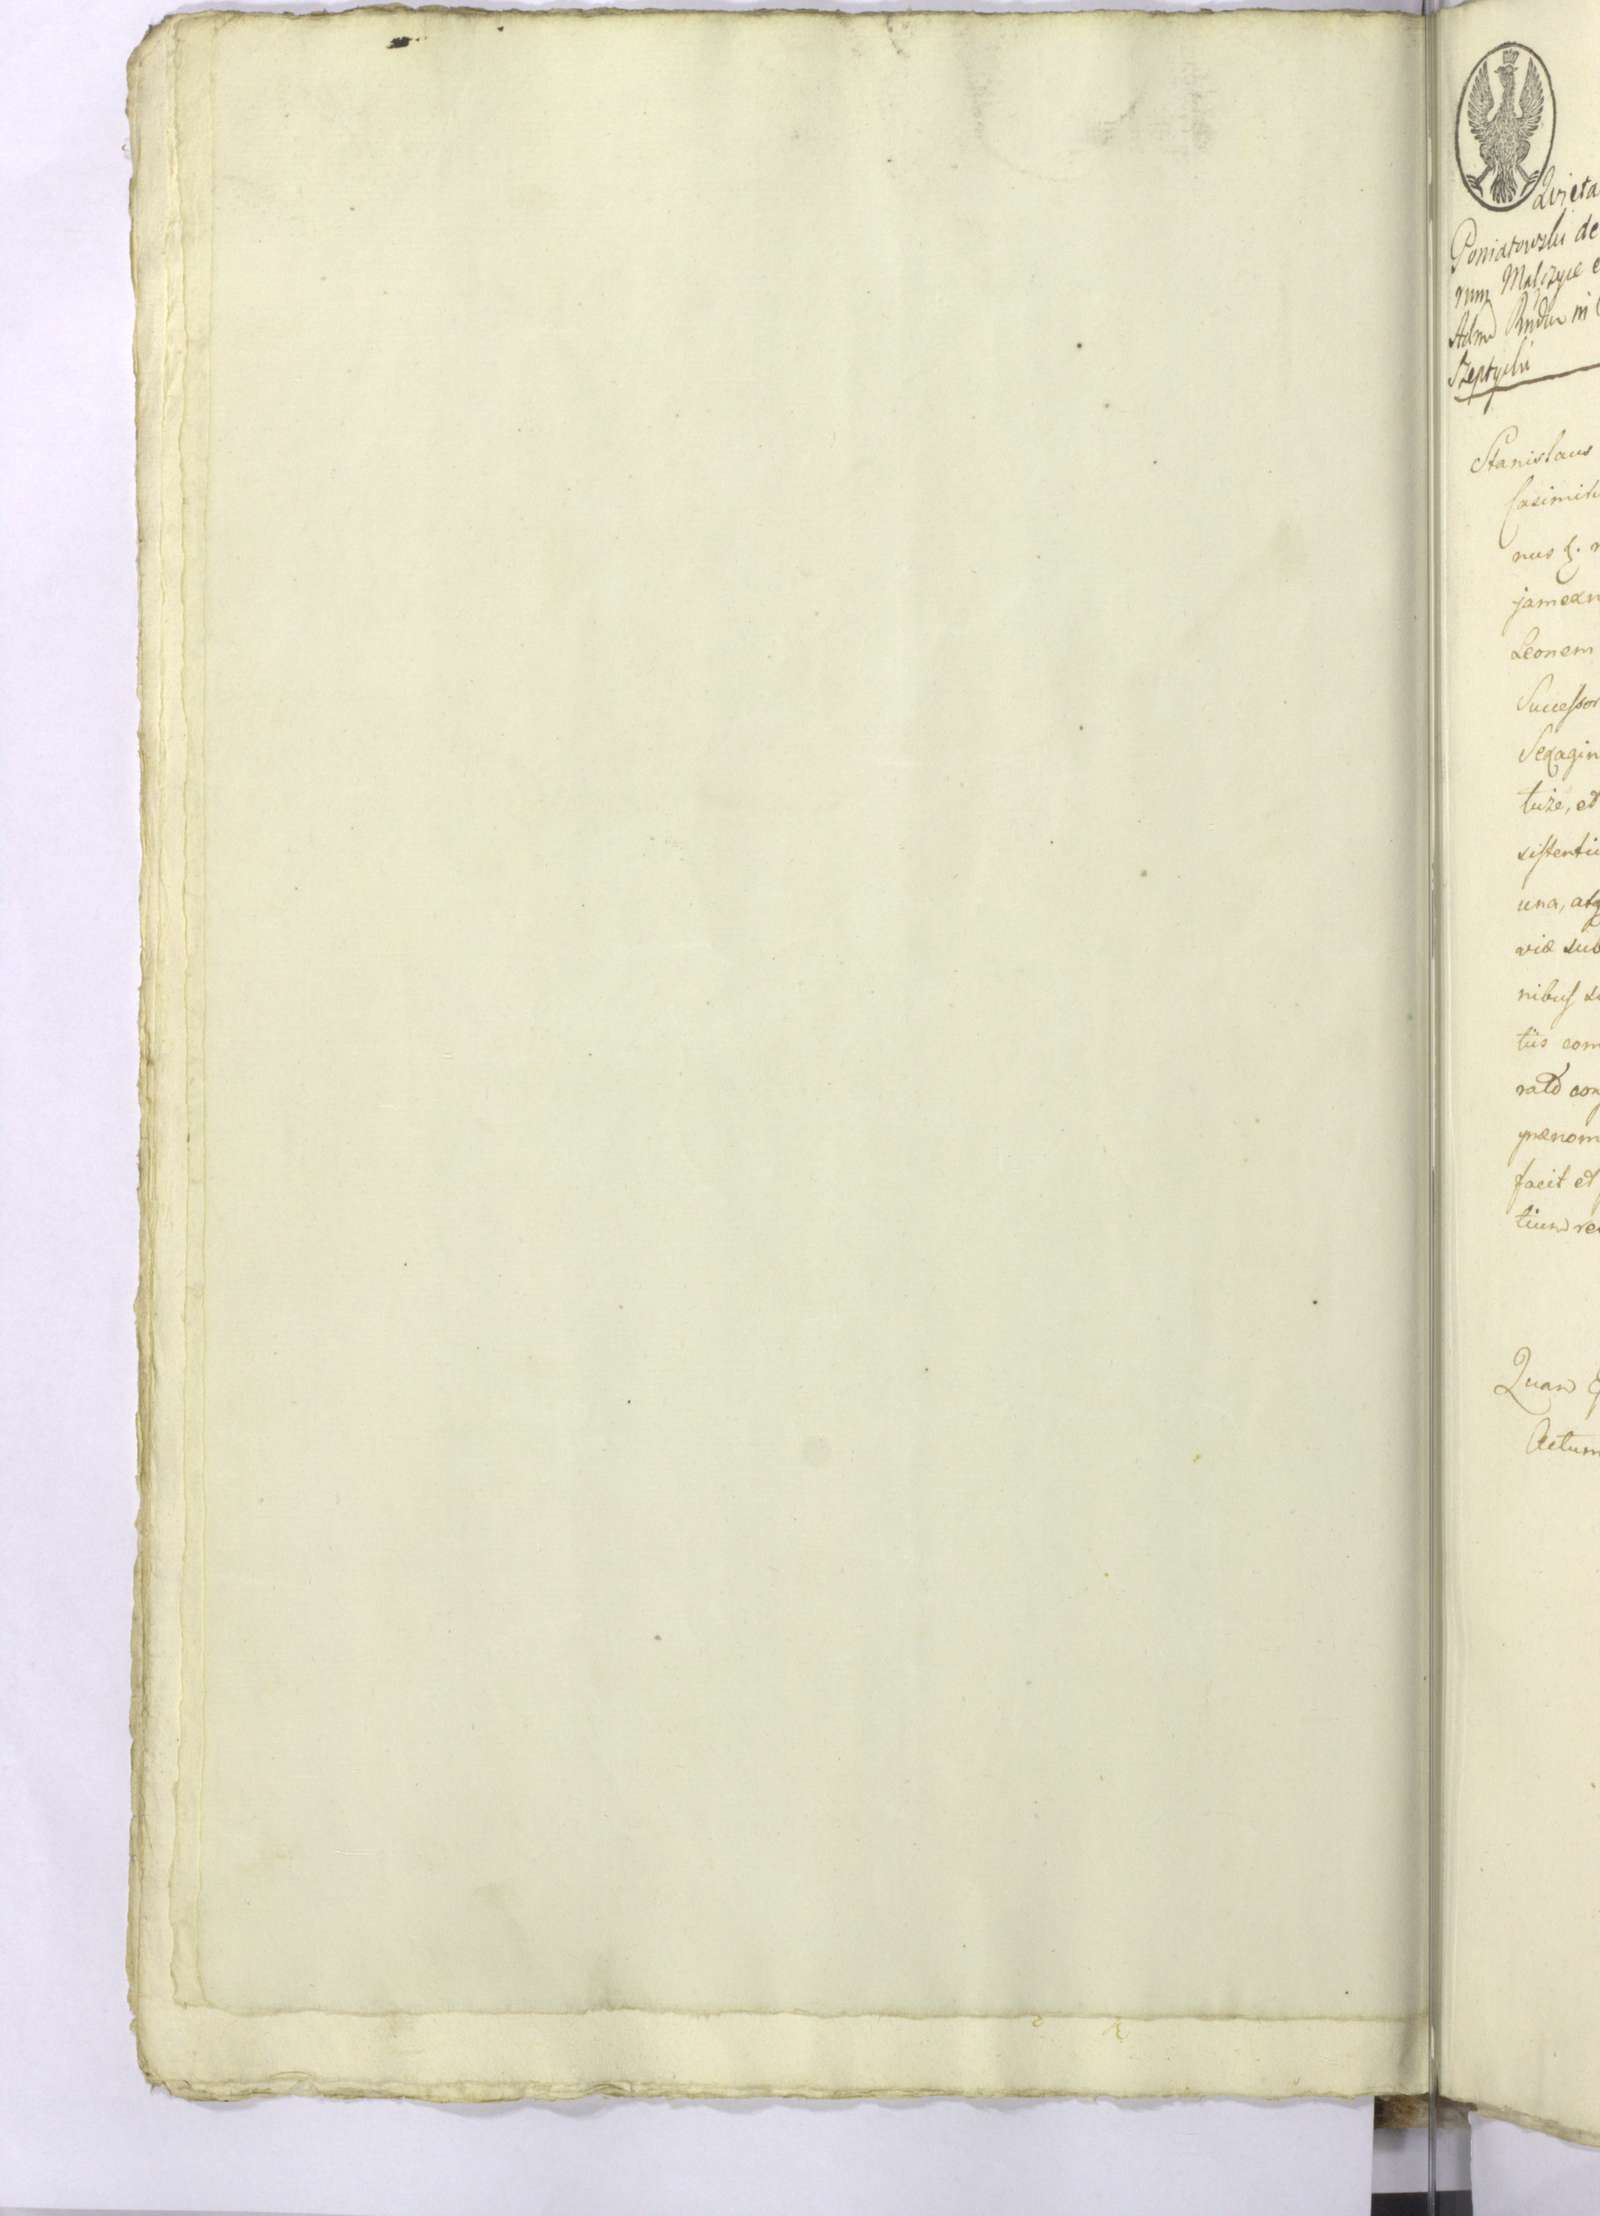 Qvieta
Poniatowski de
rum Malczyce e
Szeptycki
Stanislaus
Casimiru
nus
Leonem
Successor
Sexagin
tuże, et
sistentiu
una, atq
viæ sub
nibus su
tiis com
rald con
prænom
facit et
tium re
Quam
Actum